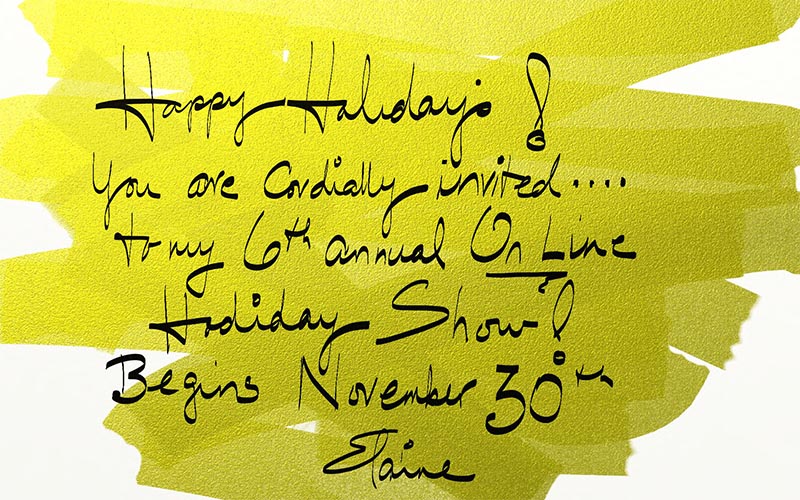 Happy Holidays!
You are Cordially invited....
to my 6th annual On Line
Holiday Show!
Begins November 30th
Elaine